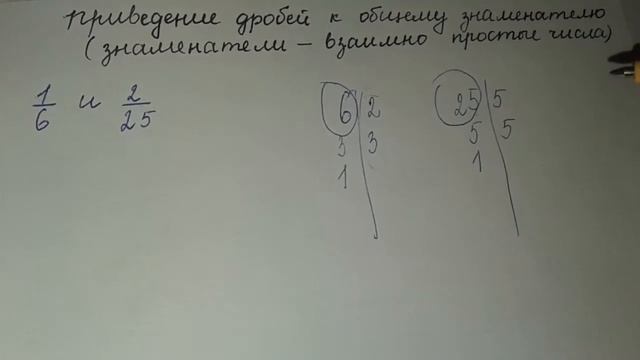 приведение дробей к общему знаменателю
(знаменатели – взаимно простые числа)
1/6 и 2/25
6 | 2
3 | 3
1
25 | 5
5 | 5
1